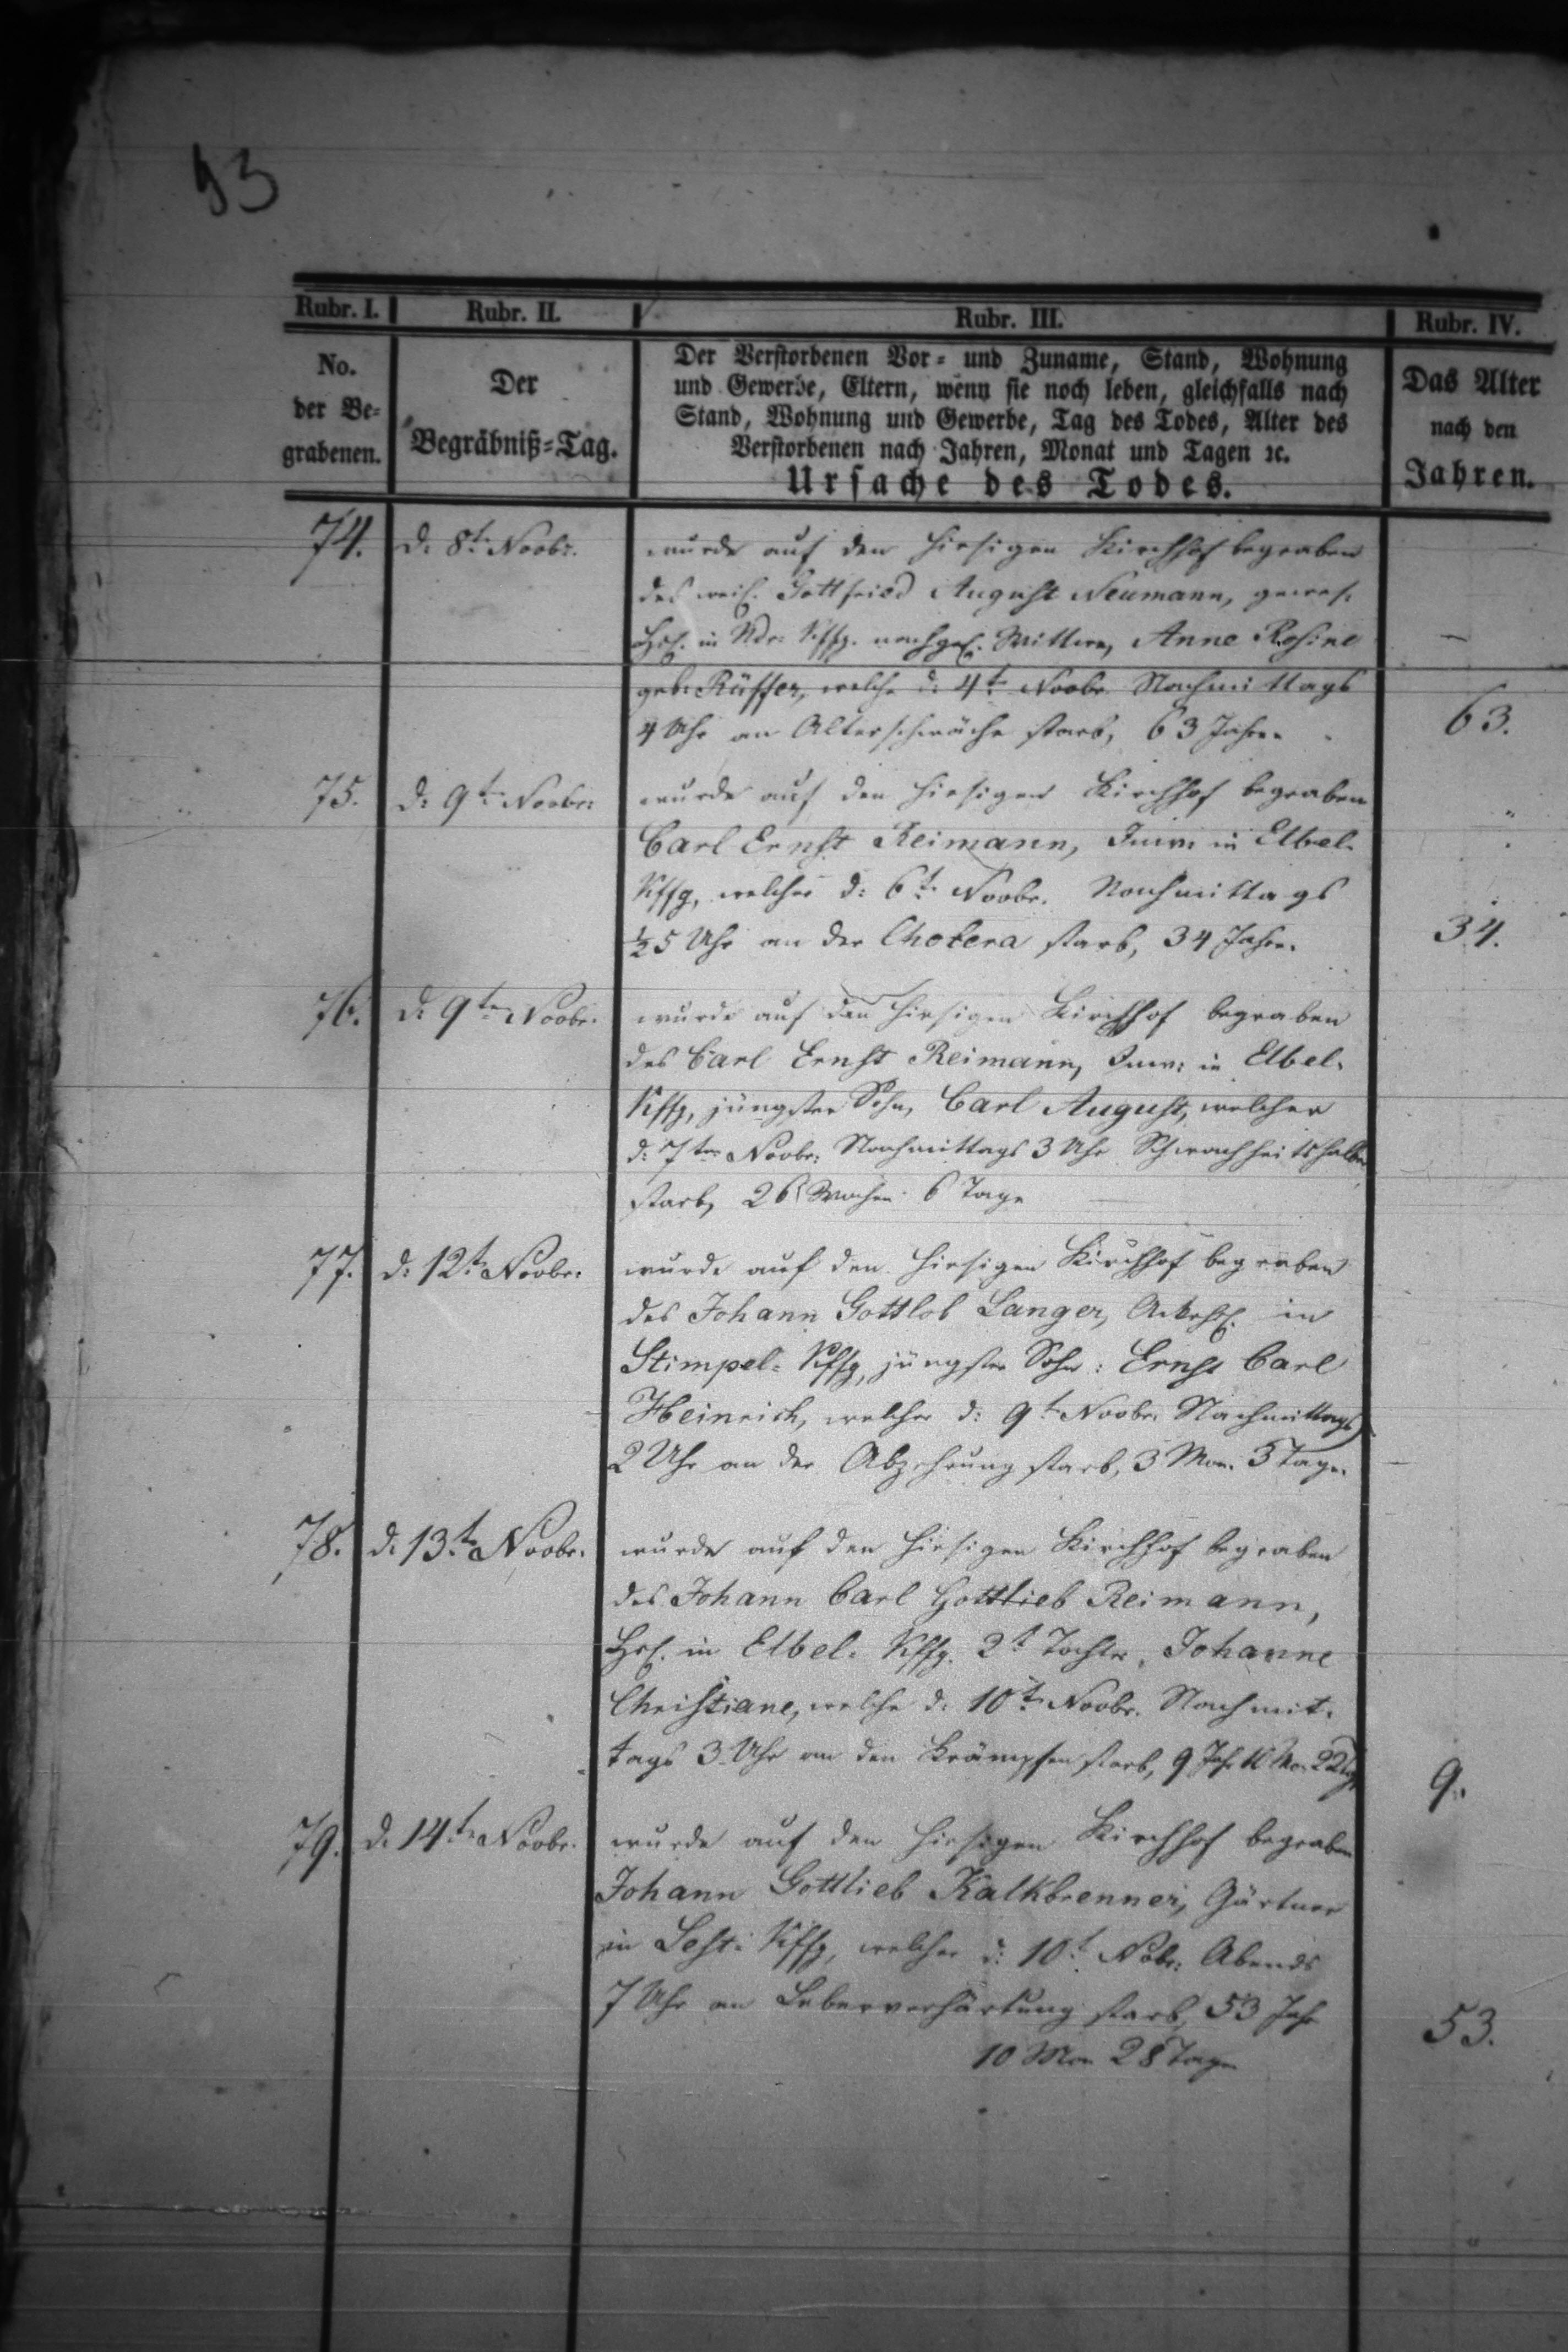 93
Rubr. I. Rubr. II. Rubr. III. Rubr. IV.
No. der Be-grabenen.
Der Begräbniß-Tag.
Der Verstorbenen Vor- und Zuname, Stand, Wohnung
und Gewerbe, Eltern, wenn sie noch leben, gleichfalls nach
Stand, Wohnung und Gewerbe, Tag des Todes, Alter des
Verstorbenen nach Jahren, Monat und Tagen ꝛc.
Ursache des Todes.
Das Alter nach den Jahren.
74. d. 8t. Novbr. wurde auf den hiesigen Kirchhof begraben
des weil. Gottfried August Neumann, gewes.
Hsl. in Ndr: Kffg. nachgel. Wittwe, Anne Rosine
geb: Rüffer, welche d: 4t. Novbr. Nachmittags
4 Uhr an Altersschwäche starb, 63 Jahre. 63.
75. d: 9t. Novbr: wurde auf den hiesigen Kirchhof begraben
Carl Ernst Reimann, Inw: in Elbel-
Kffg, welcher d: 6t. Novbr. Nachmittags
½5 Uhr an der Cholera starb, 34 Jahr. 34.
76. d: 9ten Novbr. wurde auf den hiesigen Kirchhof begraben
des Carl Ernst Reimann, Inw: in Elbel-
Kffg, jüngster Sohn, Carl August, welcher
d: 7ten Novbr: Nachmittags 3 Uhr Schwachheitshalber
starb, 26 Wochen 6 Tage
77. d: 12t. Novbr: wurde auf den hiesigen Kirchhof begraben
des Johann Gottlob Langer, in
Stimpel- Kffg, jüngster Sohn: Ernst Carl
Heinrich, welcher d: 9t. Novbr. Nachmittags
2 Uhr an der Abzehrung starb, 3 Mon. 3 Tage.
78. d. 13t. Novbr. wurde auf den hiesigen Kirchhof begraben
des Johann Carl Gottlieb Reimann,
Hsl. in Elbel- Kffg. 2t. Tochter, Johanne
Christiane, welche d. 10t. Novbr. Nachmit-
tags 3 Uhr an den Krämpfen starb, 9 Jahr Mo. 22 Tg. 9.
79. d. 14t. Novbr. wurde auf den hiesigen Kirchhof begraben
Johann Gottlieb Kalkbrenner, Gärtner
in Lest: Kffg, welcher d: 10t. Nobr: Abends
7 Uhr an Leberverhärtung starb, 53 Jahr
10 Mon 28 Tage 53.